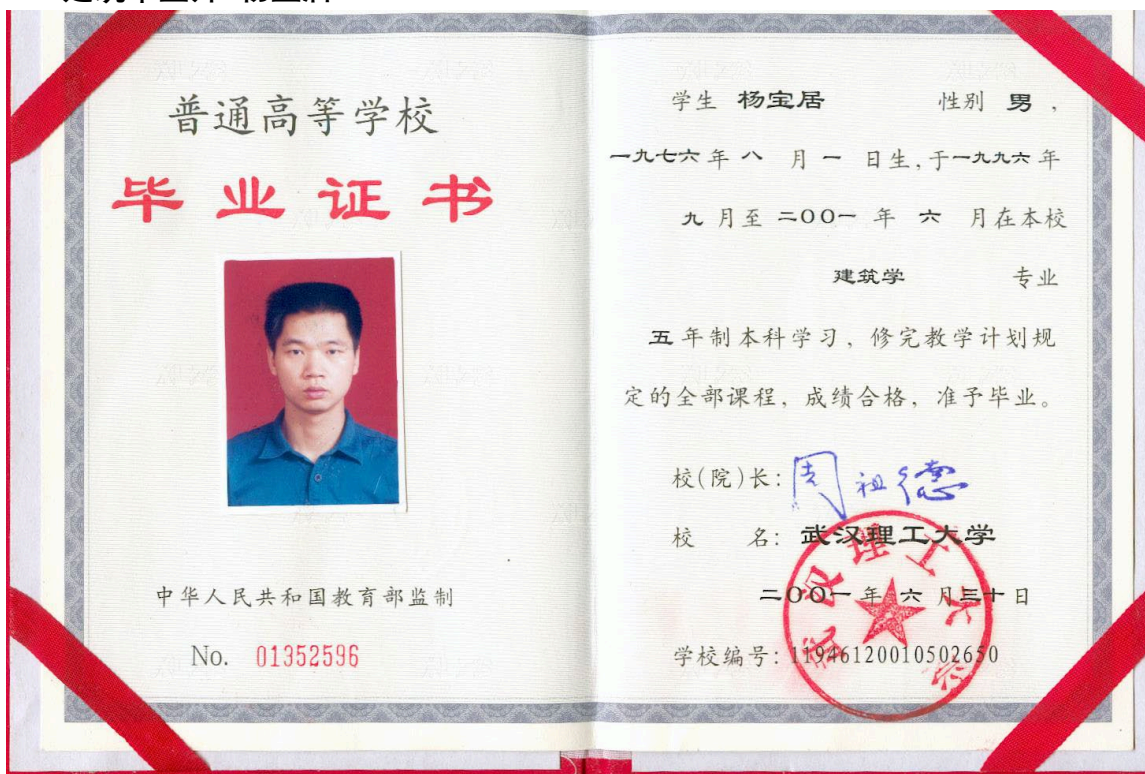 普通高等学校
毕业证书
中华人民共和国教育部监制
No. 01352596
学生 杨宝居 性别 男，
一九七六年 八 月 一 日生，于一九九六年
九 月至 二〇〇一 年 六 月在本校
建筑学 专业
五年制本科学习，修完教学计划规
定的全部课程，成绩合格，准予毕业。
校(院)长：周祖德
校 名：武汉理工大学
二〇〇一 年 六 月三十日
学校编号：11946120010502650
武汉理工大学